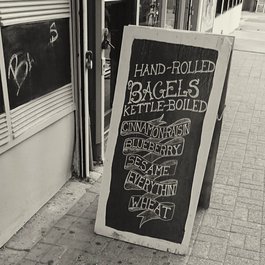 HAND-ROLLED
BAGELS
KETTLE-BOILED
CINNAMON-RAISIN
BLUEBERRY
SESAME
EVERYTHIN
WHEAT